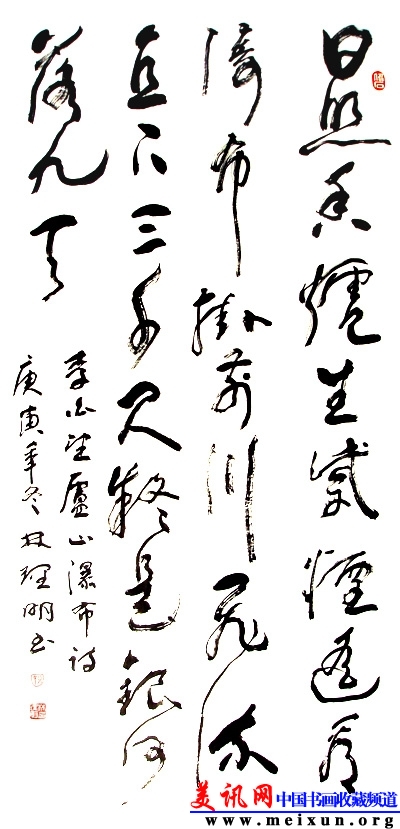 日照香爐生紫煙遥看
瀑布掛前川飛流
直下三千尺疑是銀河
落九天
李白望廬山瀑布诗
庚寅年冬林理明书
美讯网中国书画收藏频道
www.meixun.org